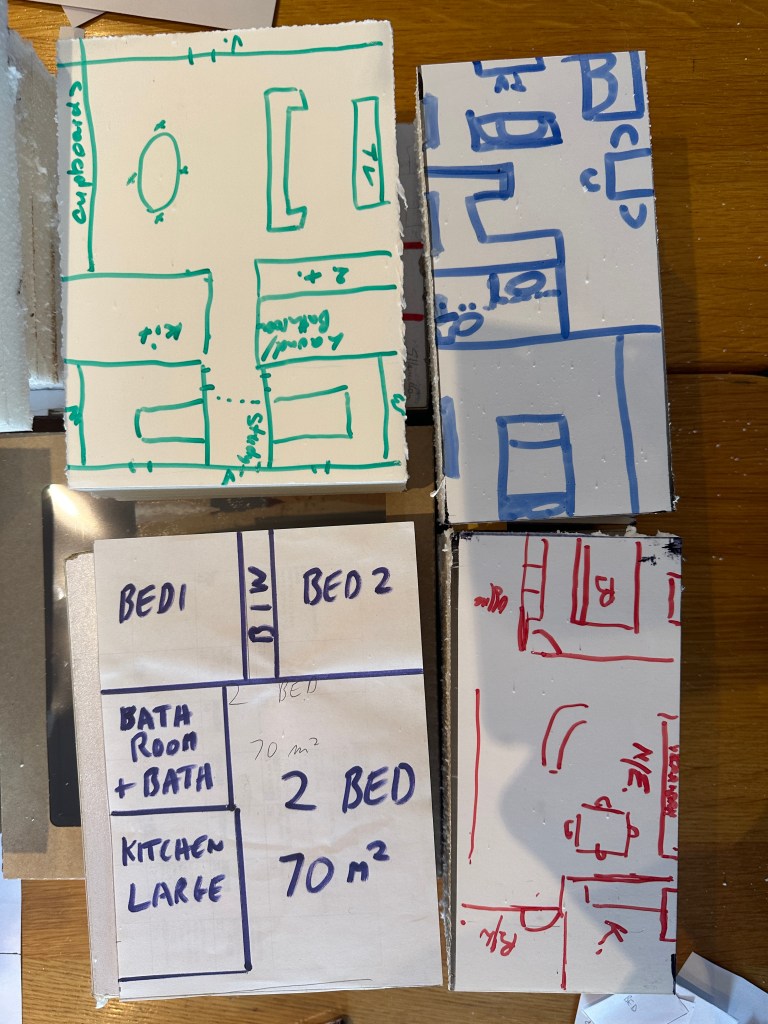 cupboards
TV
Kit
2 t.
Laund/
Bathroom
Study
W
B
BED1
BIW
BED 2
2 BED
BATH
ROOM
+ BATH
70 m²
2 BED
70 m²
KITCHEN
LARGE
B
N/E.
K.
B/R.
BED